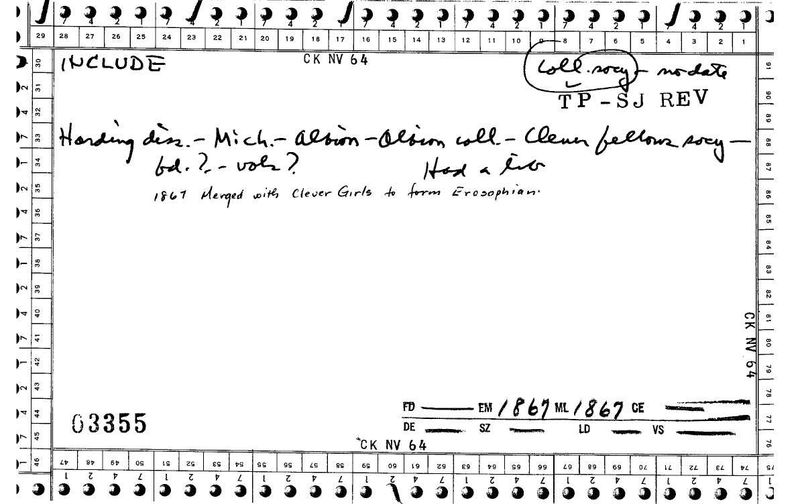 29 28 27 26 25 24 23 22 21 20 19 18 17 16 15 14 13 12 11 10 9 8 7 6 5 4 3 2 1
INCLUDE CK NV 64 coll. socy - no date
TP-SJ REV
Harding diss. - Mich. - Albion - Albion coll. - Clever fellows socy -
fd. ? - vols ? Had a lib
1867 Merged with Clever Girls to form Erosophian.
CK NV 64
03355
FD EM 1867 ML 1867 CE
DE SZ LD VS
CK NV 64
30 31 32 33 34 35 36 37 38 39 40 41 42 43 44 45 46
91 90 89 88 87 86 85 84 83 82 81 80 79 78 77 76
47 48 49 50 51 52 53 54 55 56 57 58 59 60 61 62 63 64 65 66 67 68 69 70 71 72 73 74 75